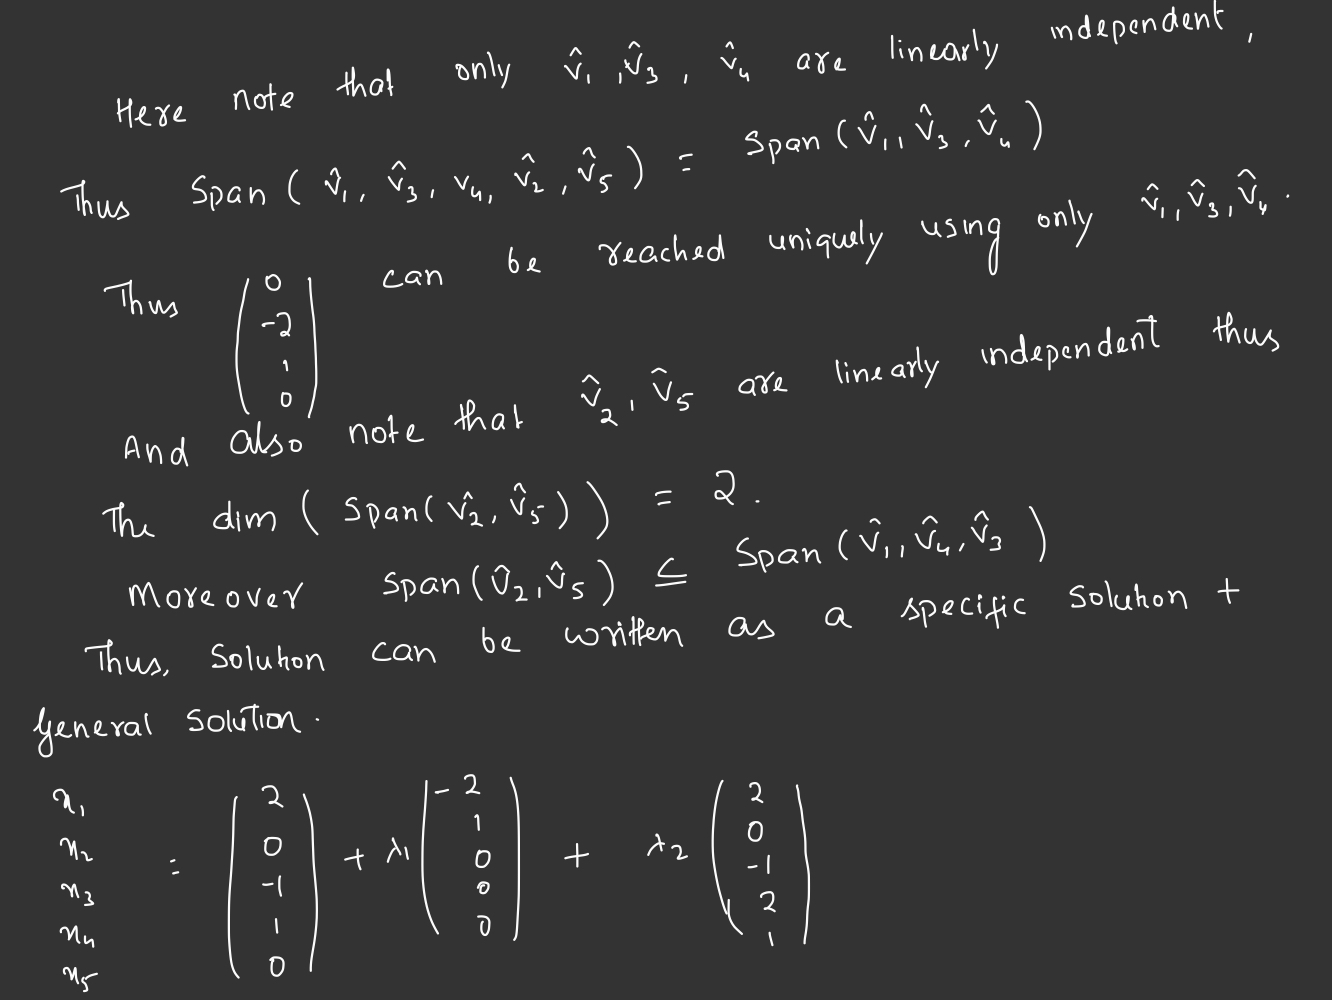 Here note that only v̂₁, v̂₃, v̂₄ are linearly independent,
Thus Span ( v̂₁, v̂₃, v₄, v̂₂, v̂₅ ) = Span ( v̂₁, v̂₃, v̂₄ )
Thus ( 0 -2 1 0 ) can be reached uniquely using only v̂₁, v̂₃, v̂₄.
And also note that v̂₂, v̂₅ are linearly independent thus
The dim ( Span( v̂₂, v̂₅ ) ) = 2.
Moreover Span ( v̂₂, v̂₅ ) ⊆ Span ( v̂₁, v̂₄, v̂₃ )
Thus, Solution can be written as a specific solution +
General Solution.
x₁ x₂ x₃ x₄ x₅ = ( 2 0 -1 1 0 ) + λ₁ ( -2 1 0 0 0 ) + λ₂ ( 2 0 -1 2 1 )